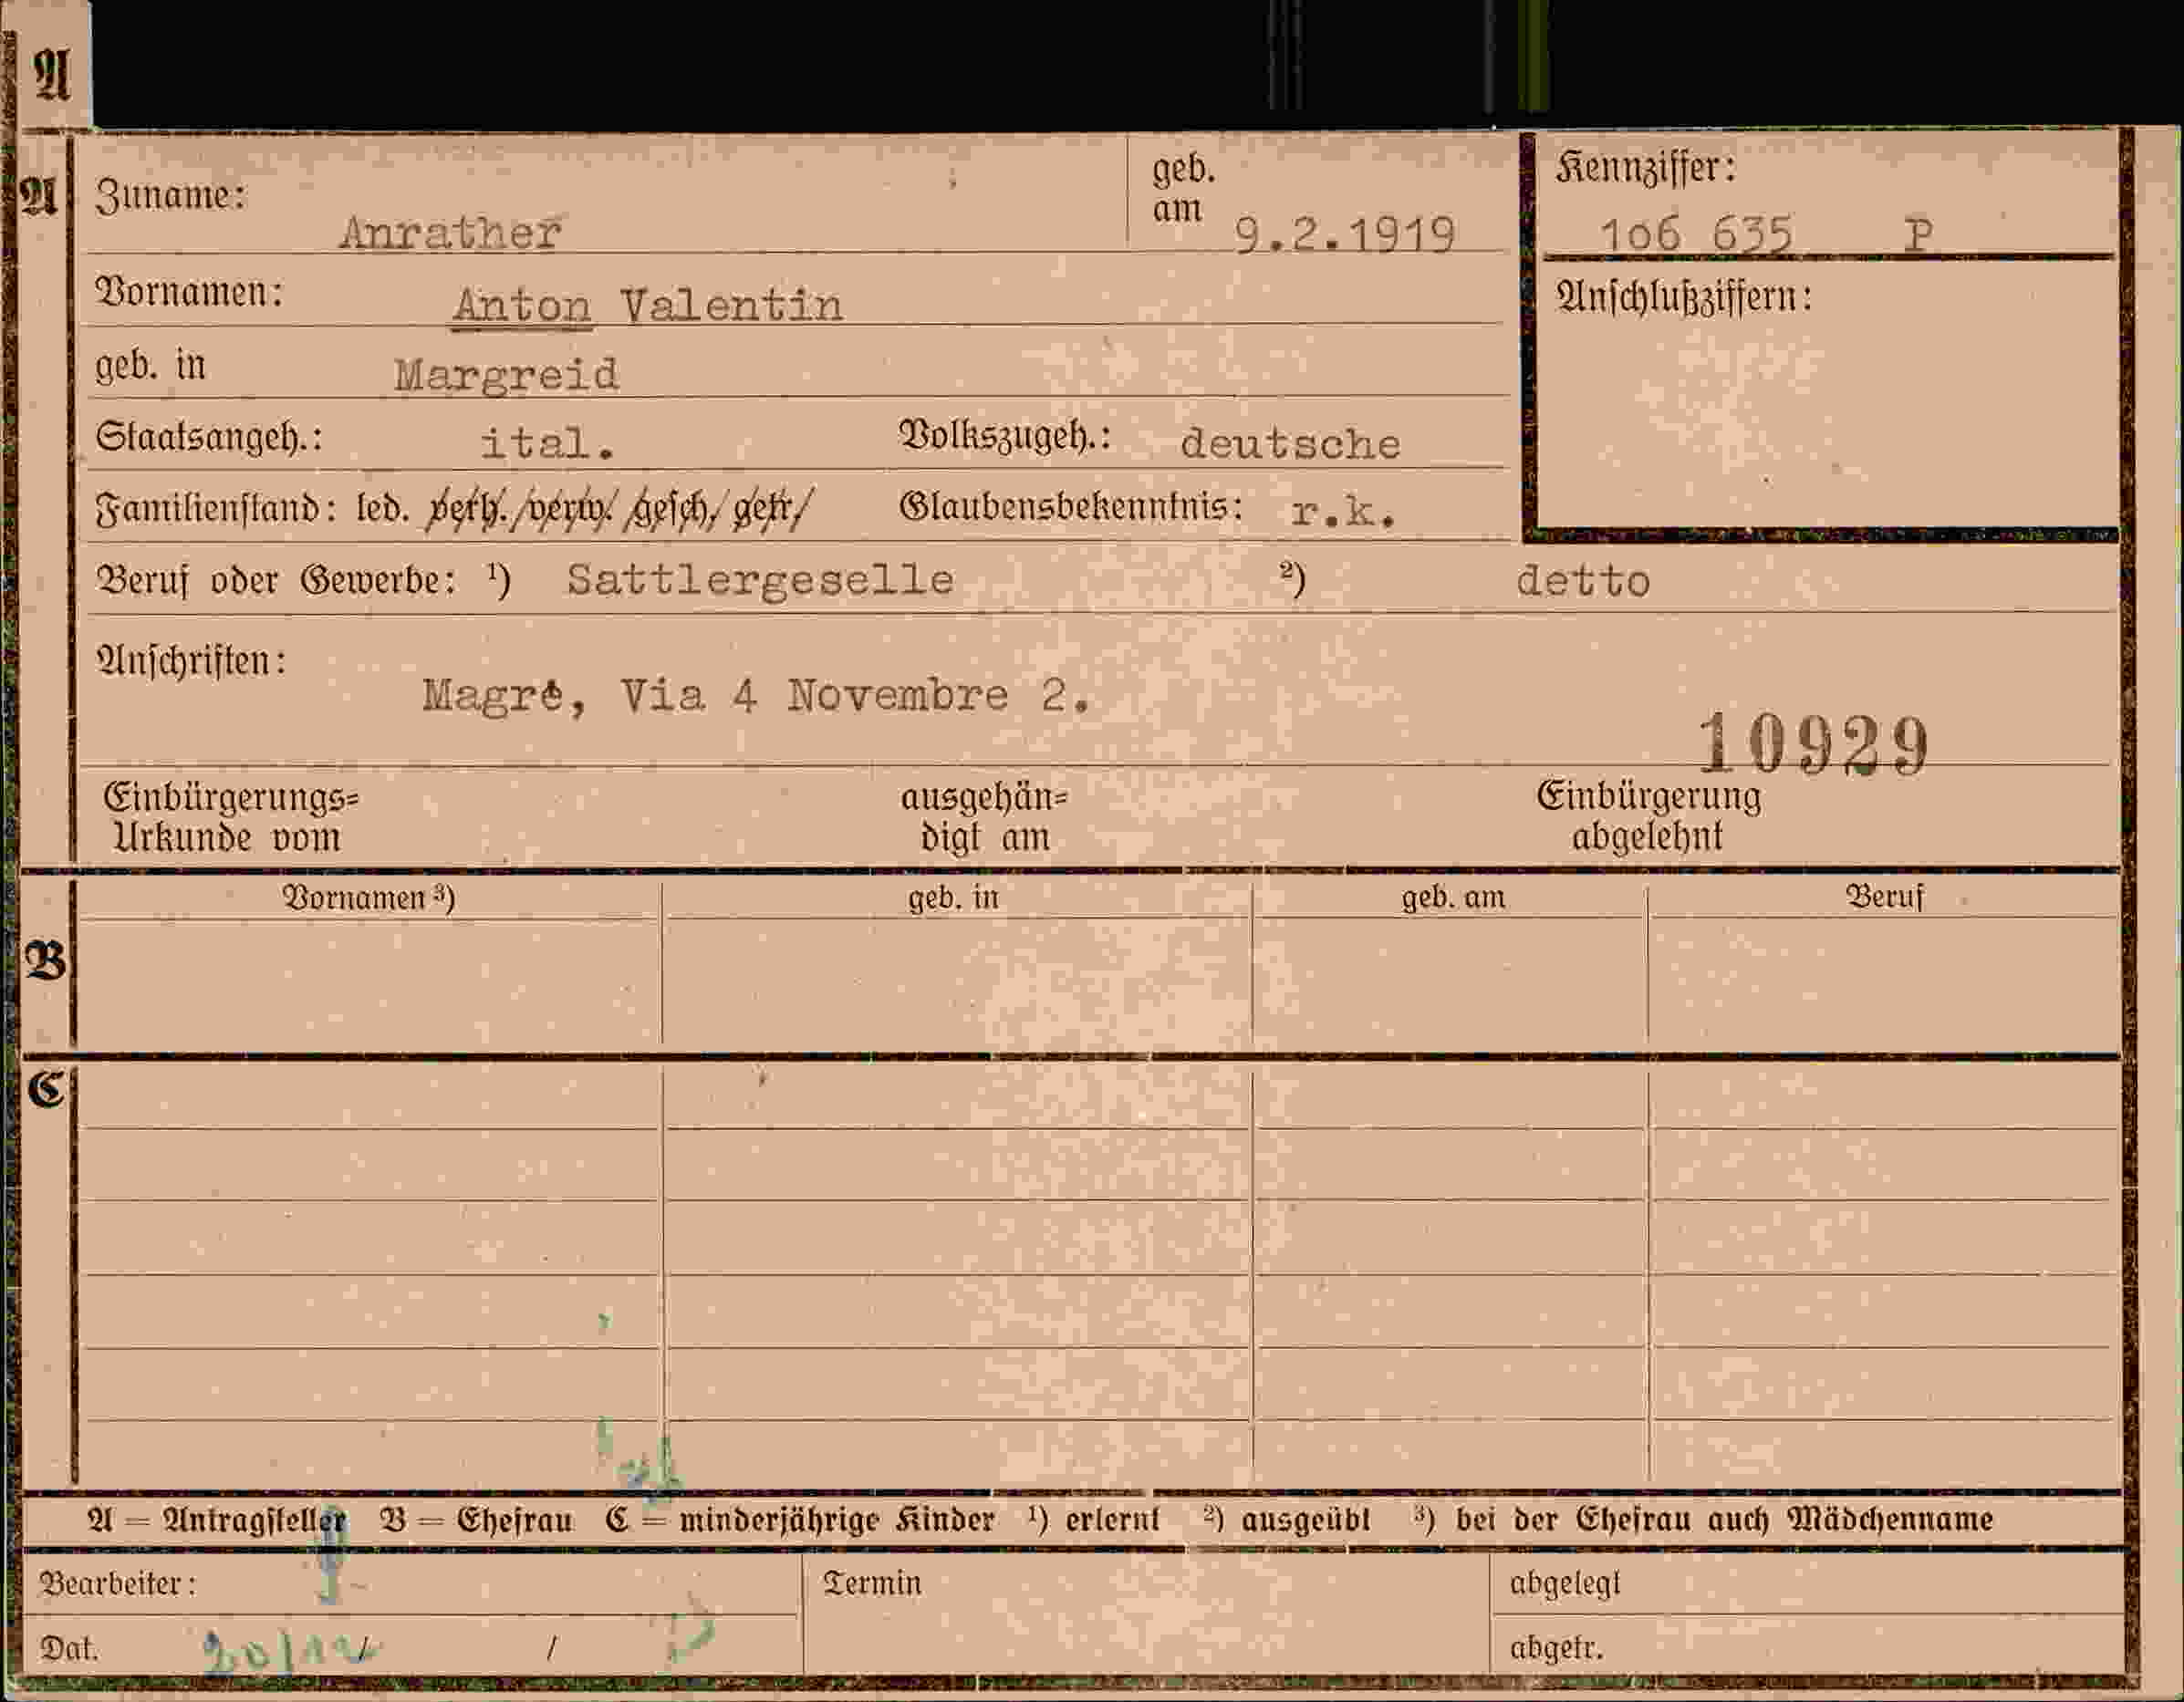 A
A
Zuname: Anrather
geb. am 9.2.1919
Kennziffer:
1o6 635 P
Vornamen: Anton Valentin
Anschlußziffern:
geb. in Margreid
Staatsangeh.: ital. Volkszugeh.: deutsche
Familienstand: led. verh. verw. gesch. getr. Glaubensbekenntnis: r.k.
Beruf oder Gewerbe: ¹) Sattlergeselle ²) detto
Anschriften:
Magrè, Via 4 Novembre 2.
10929
Einbürgerungs=
Urkunde vom
ausgehän=
digt am
Einbürgerung
abgelehnt
Vornamen ³) geb. in geb. am Beruf
B
C
A = Antragsteller B = Ehefrau C = minderjährige Kinder ¹) erlernt ²) ausgeübt ³) bei der Ehefrau auch Mädchenname
Bearbeiter: Termin abgelegt
Dat. 20/12 / / abgetr.